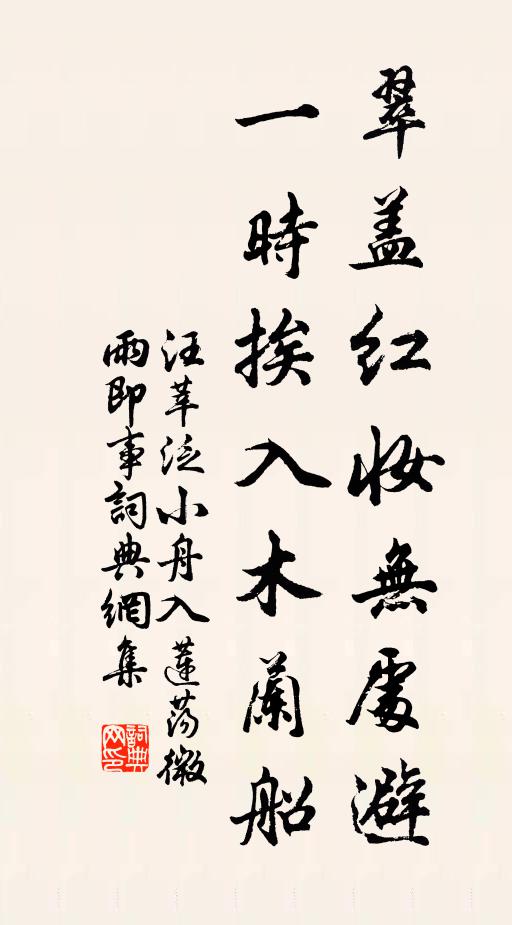 翠盖红妆無處避
一時挨入木蘭船
汪莘泛小舟入蓮荡微
雨即事詞典網集
詞典网印